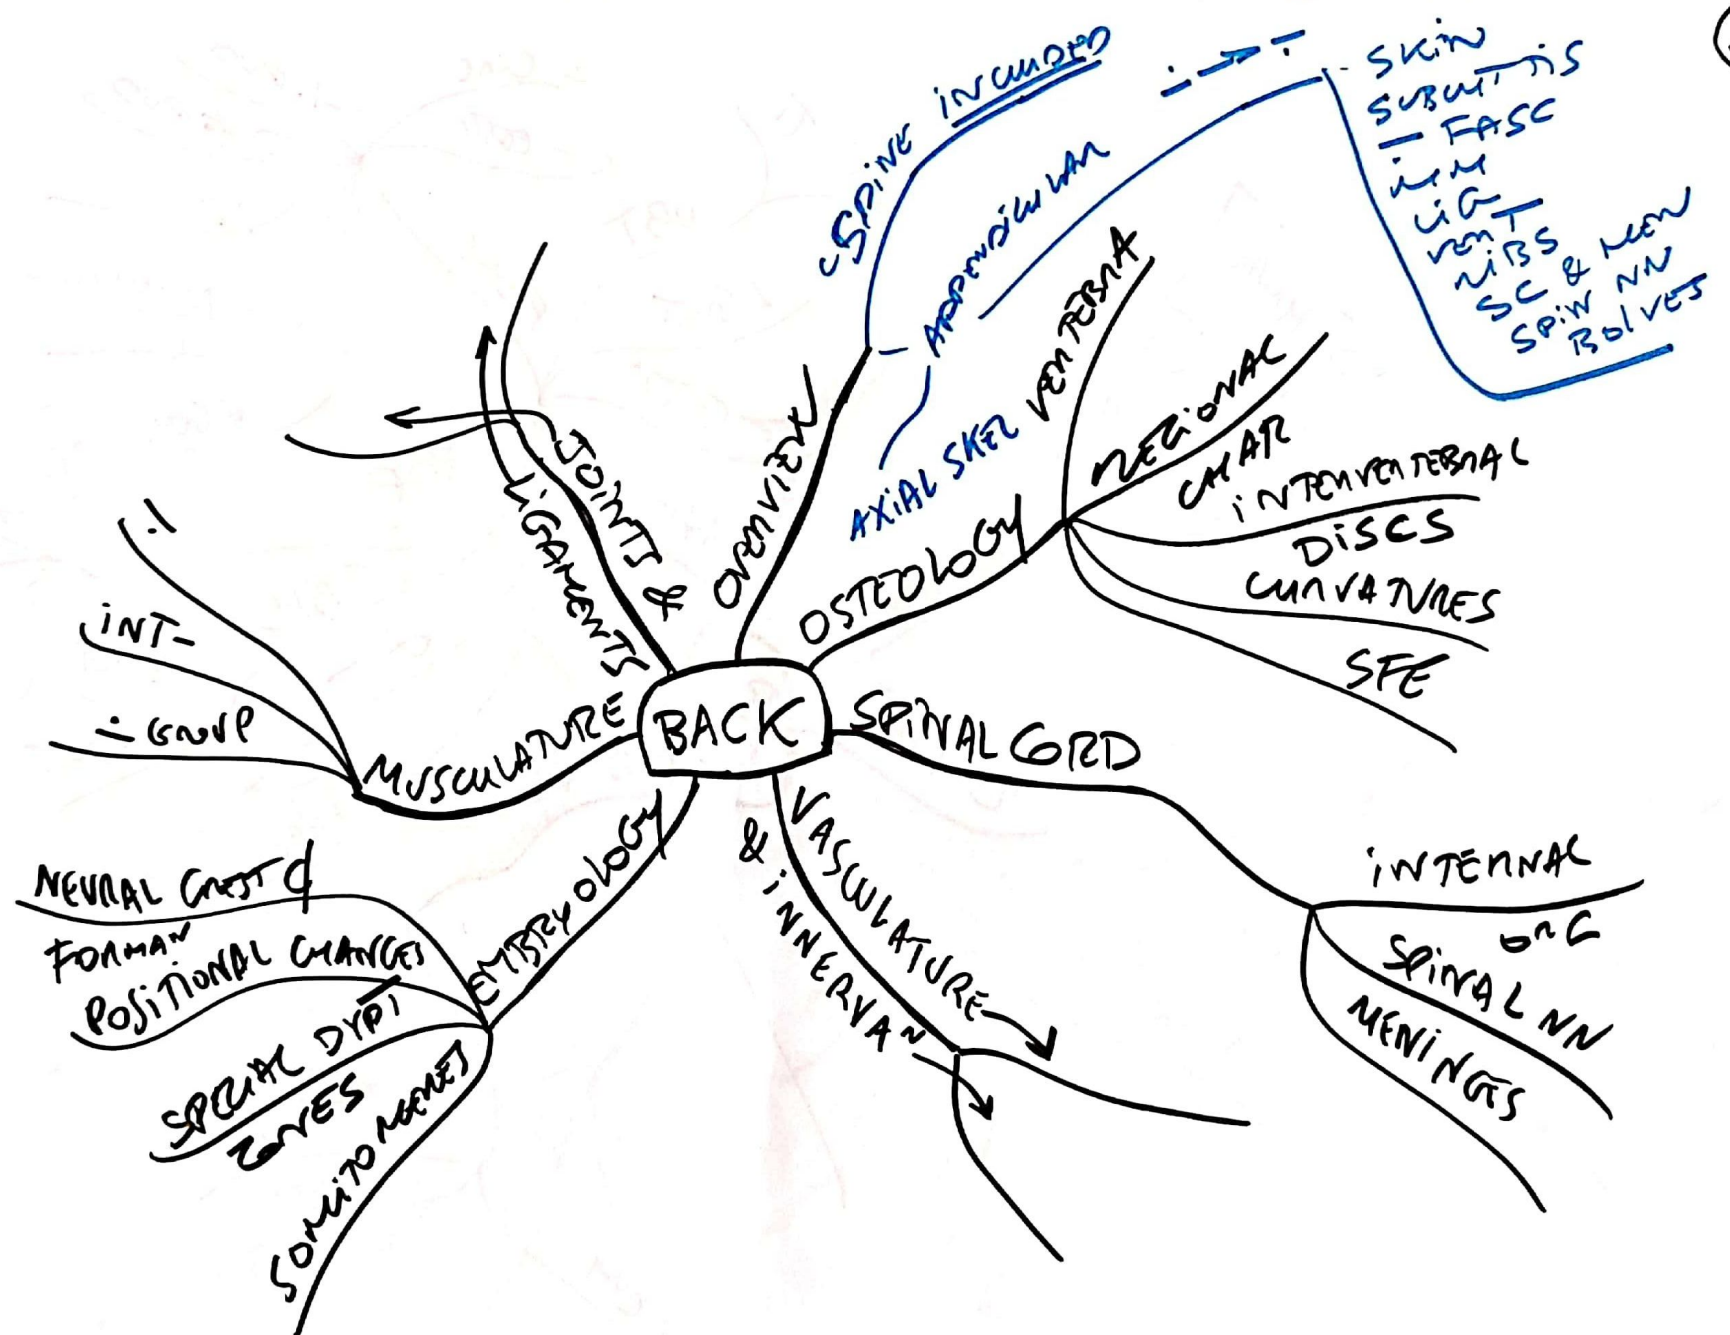 C-SPINE INCLUDED
APPENDICULAR
AXIAL SKEL
SKIN
SUBCUT TIS
FASC
MM
LIG
VERT
RIBS
SC & MEN
SPIN NN
BDLVES
OVERVIEW
OSTEOLOGY
VERTEBRA
REGIONAL
CHAR
INTERVERTEBRAL
DISCS
CURVATURES
SFE
BACK
SPINAL CORD
INTERNAL
ORG
SPINAL NN
MENINGES
VASCULATURE
& INNERVAN
EMBRYOLOGY
NEURAL CREST
FORMAN
POSITIONAL CHANGES
SPECIAL
ZONES
SOMITOMERES
MUSCULATURE
INT-
GROUP
JOINTS &
LIGAMENTS